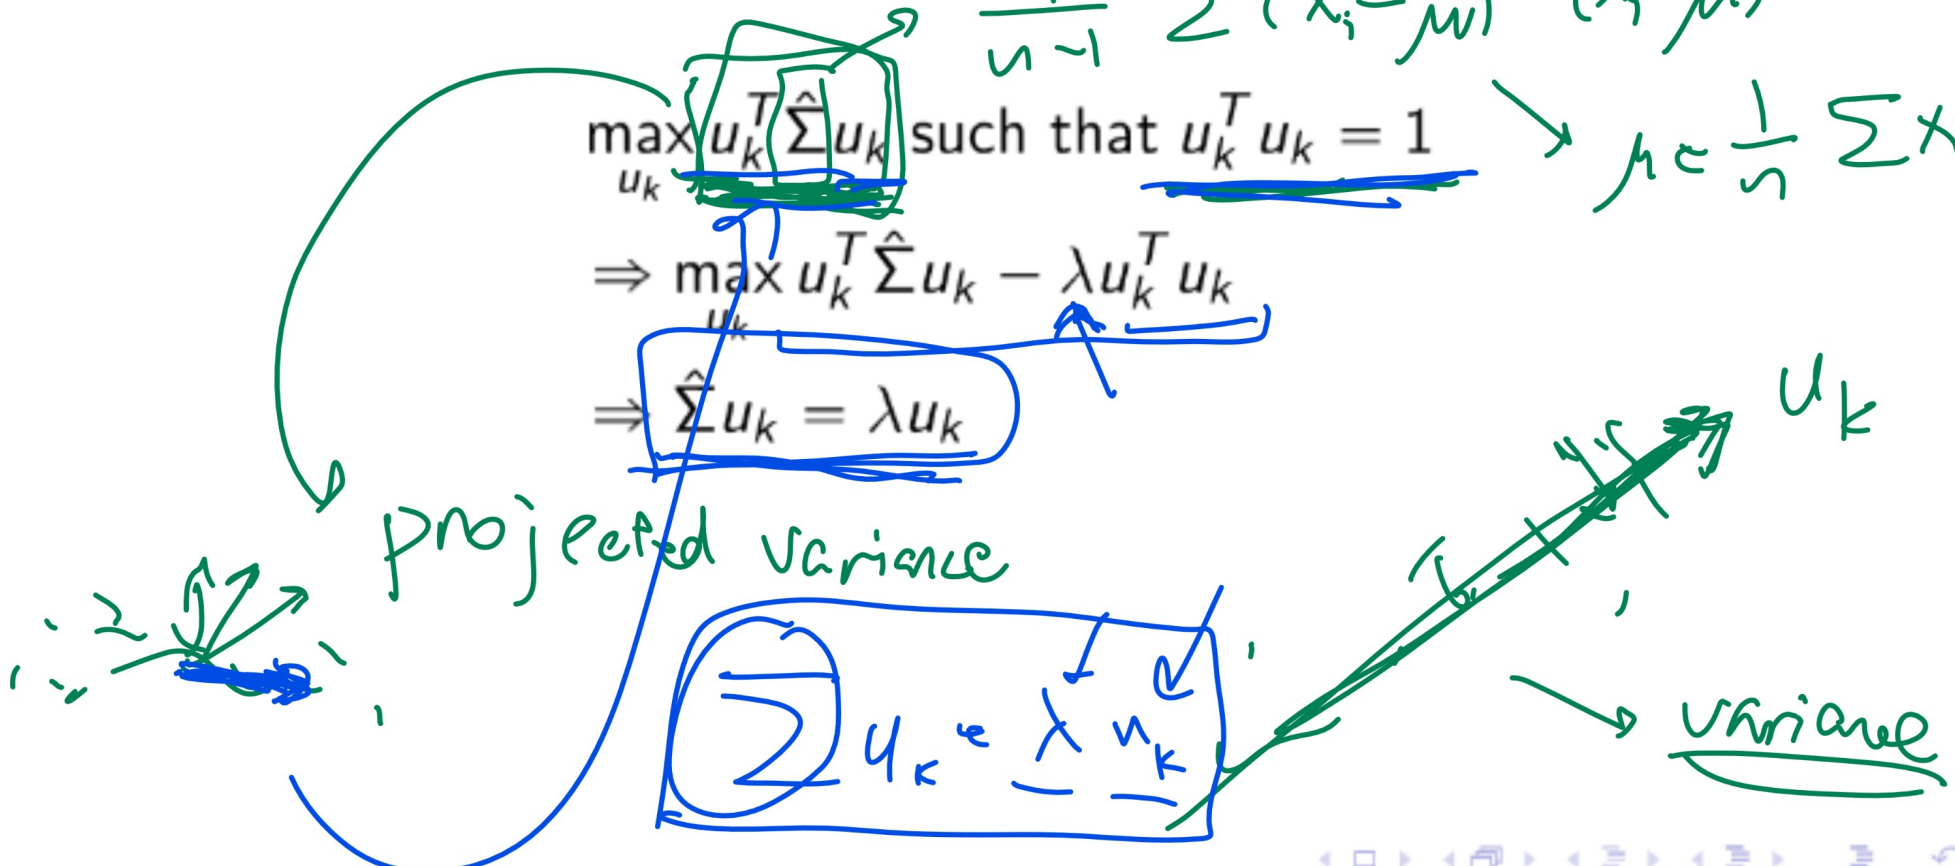 1/(n-1) Σ (x_i - μ) (x_i - μ)
max_{u_k} u_k^T Σ̂ u_k such that u_k^T u_k = 1
μ = 1/n Σ x
⇒ max_{u_k} u_k^T Σ̂ u_k − λ u_k^T u_k
⇒ Σ̂ u_k = λ u_k
u_k
projected variance
Σ u_k = λ u_k
variance